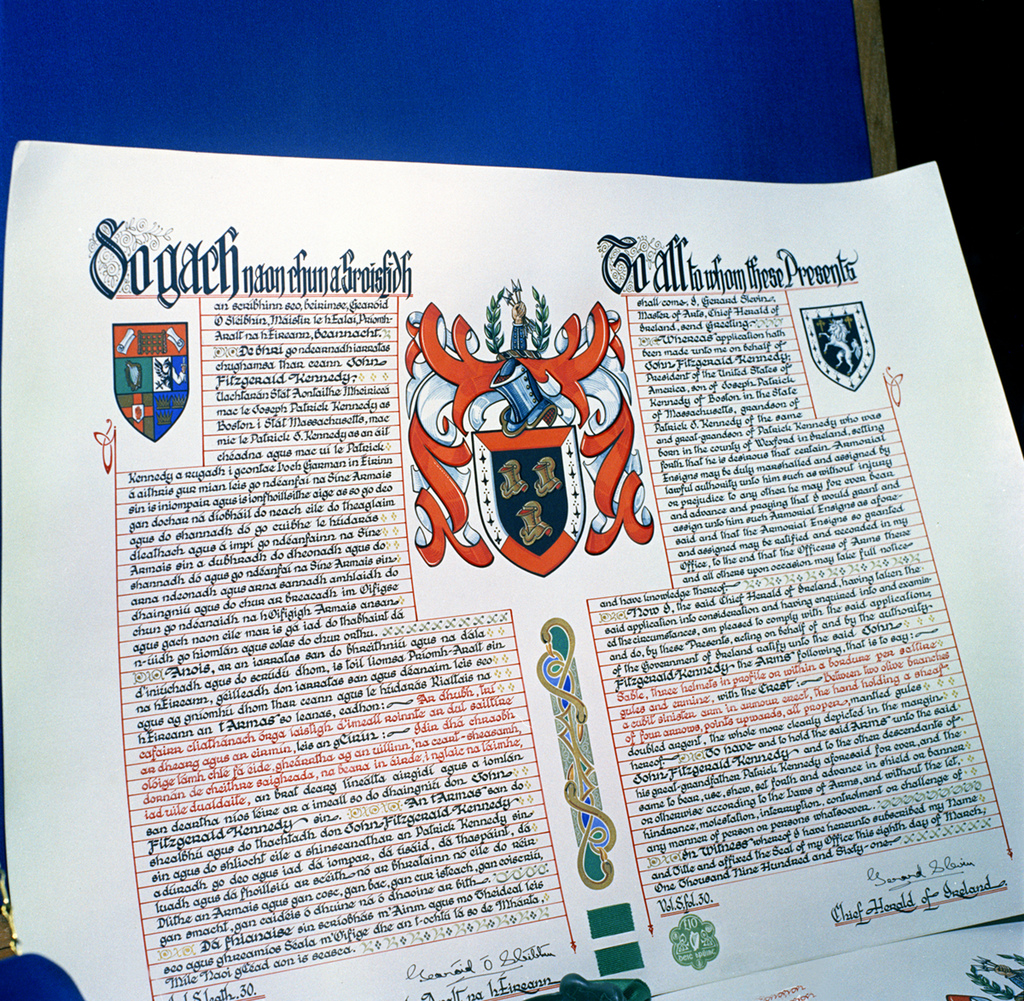 Do gach
naon chun a sroisfidh
an scribhinn seo, beirimse, Gearoid
O Sleibhin, Máistir le hEalaí, Priomh-
Aralt na hÉireann, beannacht.
De bhrí go ndearnadh iarratas
chughamsa thar ceann John
Fitzgerald Kennedy,
Uachtarán Stát Aontaithe Mheiriceá
mac le Joseph Patrick Kennedy as
Boston i Stát Massachusetts, mac
mic le Patrick J. Kennedy as an áit
chéadna agus mac uí le Patrick
Kennedy a rugadh i gcontae Loch Garman in Éirinn
á aithris gur mian leis go ndéanfaí na Sine Armais
sin is iniompair agus is ionfhoillsithe aige as so go deo
gan dochar ná díobháil do neach eile do theaglaim
agus do shannadh dó go cuibhe le húdarás
dleathach agus á impí go ndéanfainn na Sine
Armais sin a dubhradh do dheonadh agus do
shannadh dó agus go ndéanfaí na Sine Armais sin
arna ndeonadh agus arna sannadh amhlaidh do
dhaingniú agus do chur ar breacadh im Oifigse
chun go ndéanaidh na hOifigigh Armais ansan
agus gach naon eile mar is gá iad do thabhairt dá
n-úidh go hiomlán agus eolas do chur orthu.
Anois, ar an iarratas san do bhreithniú agus na dála
d'iniúchadh agus do scrúdú dhom, is toil liomsa Príomh-Aralt sin
na hÉireann, géilleadh don iarratas san agus déanaim leis seo
agus ag gníomhú dhom thar ceann agus le húdarás Rialtais na
hÉireann an tArmas so leanas, eadhon: Ar dhubh, trí
cafairr cliathánach órga laistigh d'imeall roinnte ar dul sailtíre
ar dhearg agus ar eirmín, leis an gCírín: Idir dhá chraobh
olóige lámh chlé fá éide, ghearrtha ag an uillinn, 'na ceart-sheasamh
dornán de cheithre saigheada, na beara in airde, i nglaic na láimhe,
iad uile dualdaite, an brat dearg líneálta airgidí agus a iomlán
san deartha níos léire ar a imeall so do dhaingniú don John
Fitzgerald Kennedy sin. An tArmas san do
shealbhú agus do thachtadh don John Fitzgerald Kennedy
sin agus do shliocht eile a shinseanathar an Patrick Kennedy sin
adúradh go deo agus iad do iompar, do úsáid, do thaspáint, do
luadh agus do fhoillsiú ar scéith nó ar bhratainn nó eile do réir
Dlithe an Armais agus gan cosc, gan bac, gan cur isteach, gan coisceriú,
gan smacht, gan caidéis ó dhuine ná ó dhaoine ar bith.
Dá fhianaise sin scríobhas m'Ainm agus mo Theideal leis
seo agus ghreamíos Séala m'Oifige dhe an t-ochtú lá so de Mhárta,
Míle Naoi gCéad aon is seasca.
Gearóid Ó Sleibhin
Aralt na hÉireann
Vol. S. leath. 30.
To all
to whom these Presents
shall come, I, Gerard Slevin,
Master of Arts, Chief Herald of
Ireland, send Greeting.
Whereas application hath
been made unto me on behalf of
John Fitzgerald Kennedy,
President of the United States of
America, son of Joseph Patrick
Kennedy of Boston in the State
of Massachusetts, grandson of
Patrick J. Kennedy of the same
and great-grandson of Patrick Kennedy who was
born in the county of Wexford in Ireland, setting
forth that he is desirous that certain Armorial
Ensigns may be duly marshalled and assigned by
lawful authority unto him such as without injury
or prejudice to any other he may for ever bear
and advance and praying that I would grant and
assign unto him such Armorial Ensigns as afore-
said and that the Armorial Ensigns so granted
and assigned may be ratified and recorded in my
Office, to the end that the Officers of Arms there
and all others upon occasion may take full notice
and have knowledge thereof.
Now I, the said Chief Herald of Ireland, having taken the
said application into consideration and having enquired into and examin-
ed the circumstances, am pleased to comply with the said application,
and do, by these Presents, acting on behalf of and by the authority
of the Government of Ireland ratify unto the said John
Fitzgerald Kennedy the Arms following, that is to say:
Sable, three helmets in profile or within a bordure per saltire
gules and ermine, with the Crest: Between two olive branches
a cubit sinister arm in armour erect, the hand holding a sheaf
of four arrows, points upwards, all proper, mantled gules
doubled argent, the whole more clearly depicted in the margin
hereof. To have and to hold the said Arms unto the said
John Fitzgerald Kennedy and to the other descendants of
his great-grandfather Patrick Kennedy aforesaid for ever, and the
same to bear, use, shew, set forth and advance in shield or banner
or otherwise according to the Laws of Arms, and without the let,
hindrance, molestation, interruption, controlment or challenge of
any manner of person or persons whatsoever.
In Witness whereof I have hereunto subscribed my Name
and Title and affixed the Seal of my Office this eighth day of March,
One Thousand Nine Hundred and Sixty-one.
Gerard Slevin
Vol. S. fol. 30.
Chief Herald of Ireland.